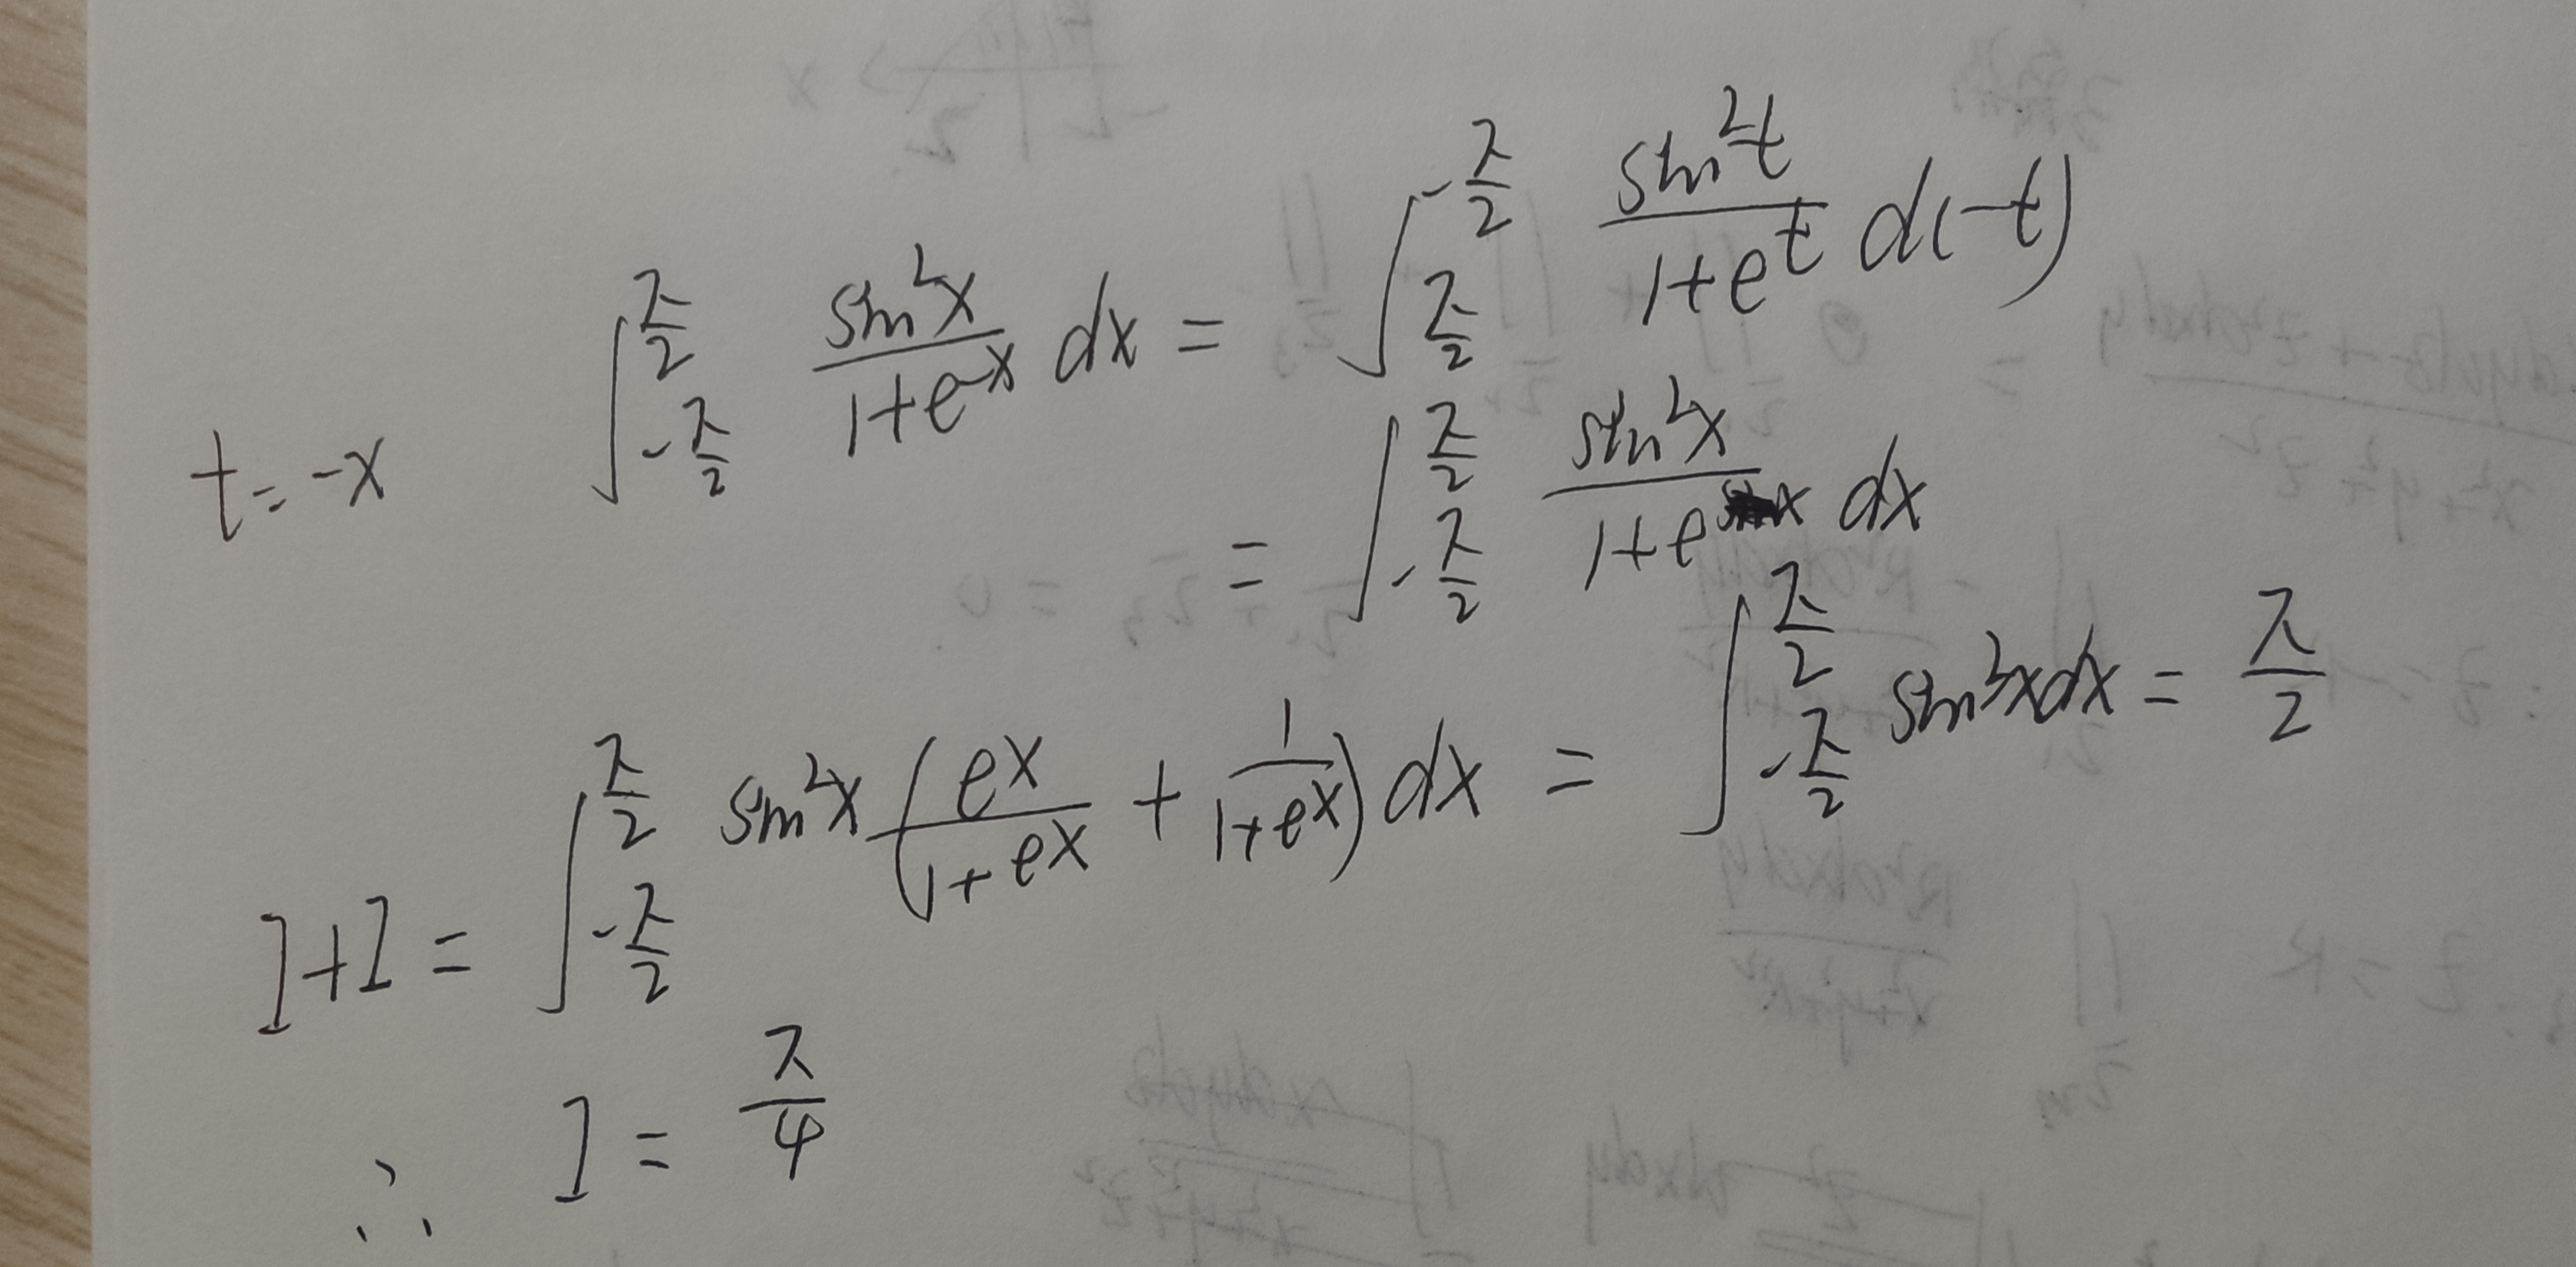 t = -x ∫_{-π/2}^{π/2} sin²x / (1+e^{-x}) dx = ∫_{π/2}^{-π/2} sin²t / (1+e^t) d(-t)
= ∫_{-π/2}^{π/2} sin²x / (1+e^x) dx
I+I = ∫_{-π/2}^{π/2} sin²x (e^x / (1+e^x) + 1 / (1+e^x)) dx = ∫_{-π/2}^{π/2} sin²x dx = π/2
∴ I = π/4